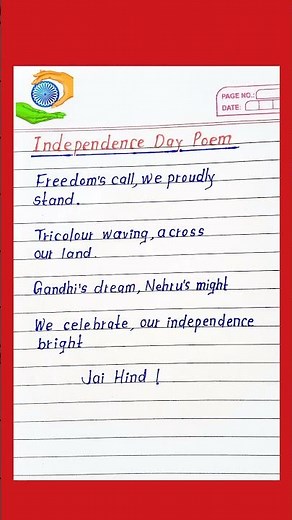 PAGE NO.:
DATE:
Independence Day Poem
Freedom's call, we proudly
stand.
Tricolour waving, across
our land.
Gandhi's dream, Nehru's might
We celebrate, our independence
bright
Jai Hind !